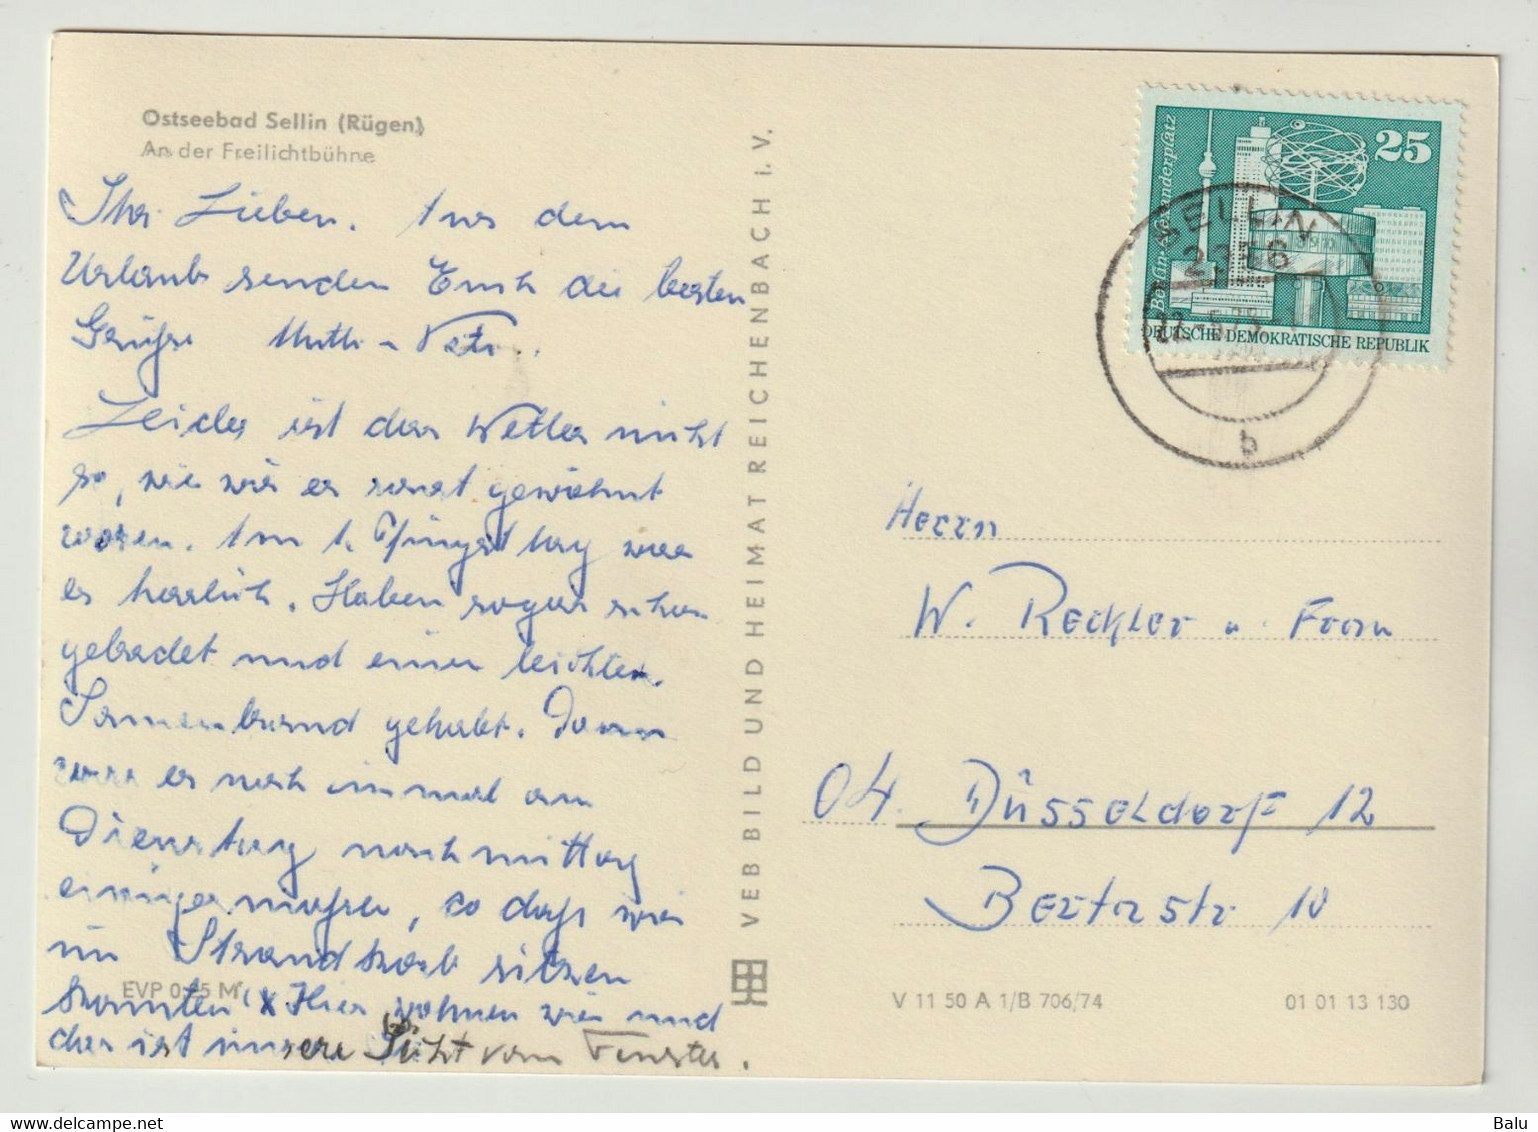 Ostseebad Sellin (Rügen)
An der Freilichtbühne
Ihr Lieben. Aus dem
Urlaub senden Euch die besten
Grüße Mutti - Vati.
Leider ist das Wetter nicht
so, wie wir es sonst gewöhnt
waren. Am 1. Pfingsttag war
es herrlich. Haben sogar schon
gebadet und einen leichten
Sonnenbrand gehabt. Dann
war es noch einmal am
Dienstag nachmittag
einigermaßen, so daß wir
im Strandkorb sitzen
konnten x Hier wohnen wir und
das ist unsere Sicht vom Fenster.
EVP M
VEB BILD UND HEIMAT REICHENBACH i. V.
25
Berlin-Alexanderplatz
DEUTSCHE DEMOKRATISCHE REPUBLIK
SELLIN
2356
b
Herrn
W. Reckler u. Frau
04. Düsseldorf 12
Bertastr 10
V 11 50 A 1/B 706/74
01 01 13 130
delcampe.net
Balu